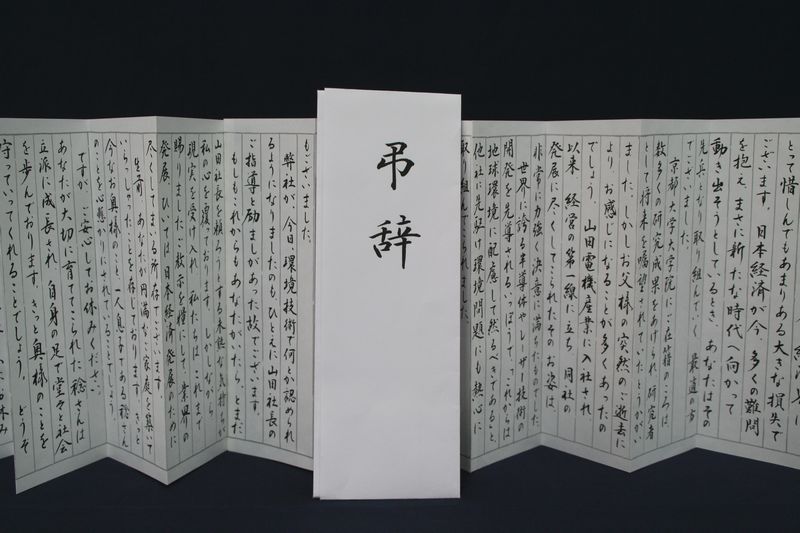 とって惜しんでもあまりある大きな損失で
ございます。日本経済が今、多くの難問
を抱え、まさに新たな時代へ向かって
動き出そうとしているとき、あなたはその
先兵となり取り組んでいく最適の方
でございました。
京都大学大学院にご在籍のころは、
数多の研究成果をあげられ、研究者
として将来を嘱望されていたとうかがい
ました。しかしお父様の突然のご逝去に
より、お感じになることが多くあったの
でしょう。山田電機産業に入社され
以来、経営の第一線に立ち、同社の
発展に尽くしてこられたそのお姿は、
非常に力強く決意に満ちたものでした。
世界に誇る半導体やレーザ技術の
開発を先導されるいっぽうで、「これからは
地球環境に配慮して然るべきである」と、
他社に先駆け環境問題にも熱心に
取り組んでこられました。
弔辞
もございました。
弊社が今日、環境技術で何とか認められ
るようになりましたのもひとえに山田社長の
ご指導と励ましがあった故でございます。
もしもこれからもあなたがいたら、とまだ
山田社長を頼ろうとする未練な気持ちが
私の心を覆っております。しかし
現実を受け入れ、私たちは、これまで
賜りましたご教示を糧として、業界の
発展、ひいては日本経済発展のために
尽くしてまいる所存でございます。
生前、あなたは円満な家庭を築いて
いらっしゃったことを存じております。きっと
今なお奥様と、一人息子である稔さん
のことを心懸かりにされていることでしょう。
ですが、ご安心してお休みください。
あなたが大切に育ててこられた稔さんは
立派に成長され、自身の足で堂々と社会
を歩んでおります。きっと奥様のことを
守っていってくれることでしょう。どうぞ